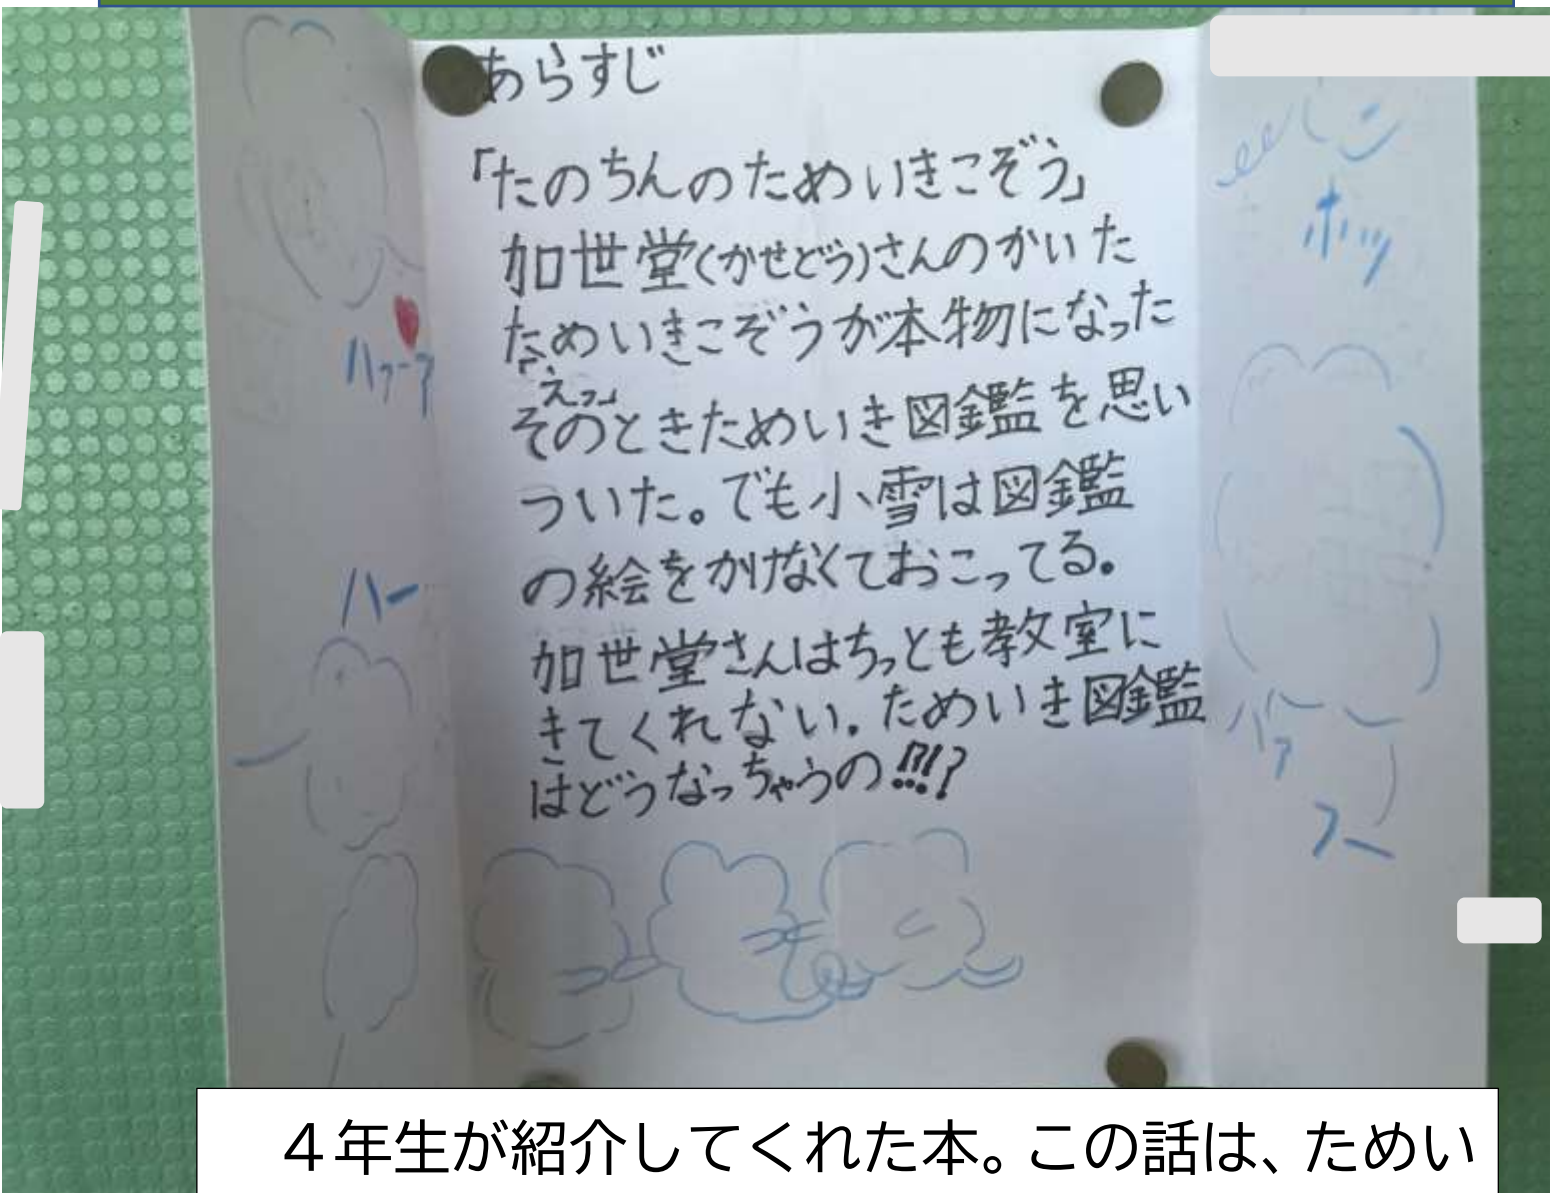 あらすじ
「たのちんのためいきこぞう」
加世堂(かせどう)さんのかいた
ためいきこぞうが本物になった
「えっ」
そのときためいき図鑑を思い
ついた。でも小雪は図鑑
の絵をかけなくておこってる。
加世堂さんはちっとも教室に
きてくれない。ためいき図鑑
はどうなっちゃうの!!!?
ホッ
ハァーア
ハー
ハァ
フー
４年生が紹介してくれた本。この話は、ためい